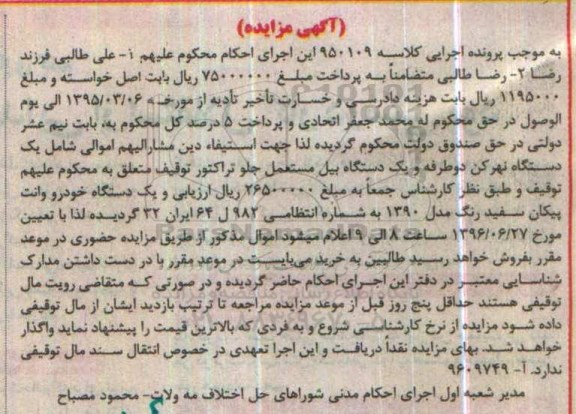 (آگهی مزایده)
به موجب پرونده اجرایی کلاسه ۹۵۰۱۰۹ این اجرای احکام محکوم علیهم ۱- علی طالبی فرزند
رضا ۲- رضا طالبی متضامناً به پرداخت مبلغ ۷۵۰۰۰۰۰۰ ریال بابت اصل خواسته و مبلغ
۱۱۹۵۰۰۰ ریال بابت هزینه دادرسی و خسارت تأخیر تأدیه از مورخه ۱۳۹۵/۰۳/۰۶ الی یوم
الوصول در حق محکوم له محمد جعفر اتحادی و پرداخت ۵ درصد کل محکوم به، بابت نیم عشر
دولتی در حق صندوق دولت محکوم گردیده لذا جهت استیفاء دین مشارالیهم اموالی شامل یک
دستگاه نهرکن دوطرفه و یک دستگاه بیل مستعمل جلو تراکتور توقیف متعلق به محکوم علیهم
توقیف و طبق نظر کارشناس جمعاً به مبلغ ۲۶۵۰۰۰۰۰ ریال ارزیابی و یک دستگاه خودرو وانت
پیکان سفید رنگ مدل ۱۳۹۰ به شماره انتظامی ۹۸۲ ل ۶۴ ایران ۳۲ گردیده لذا با تعیین
مورخ ۱۳۹۶/۰۶/۲۷ ساعت ۸ الی ۹ اعلام میشود اموال مذکور از طریق مزایده حضوری در موعد
مقرر بفروش خواهد رسید طالبین به خرید می‌بایست در موعد مقرر با در دست داشتن مدارک
شناسایی معتبر در دفتر این اجرای احکام حاضر گردیده و در صورتی که متقاضی رویت مال
توقیفی هستند حداقل پنج روز قبل از موعد مزایده مراجعه تا ترتیب بازدید ایشان از مال توقیفی
داده شود مزایده از نرخ کارشناسی شروع و به فردی که بالاترین قیمت را پیشنهاد نماید واگذار
خواهد شد. بهای مزایده نقداً دریافت و این اجرا تعهدی در خصوص انتقال سند مال توقیفی
ندارد. آ- ۹۶۰۹۷۴۹
مدیر شعبه اول اجرای احکام مدنی شوراهای حل اختلاف مه ولات- محمود مصباح